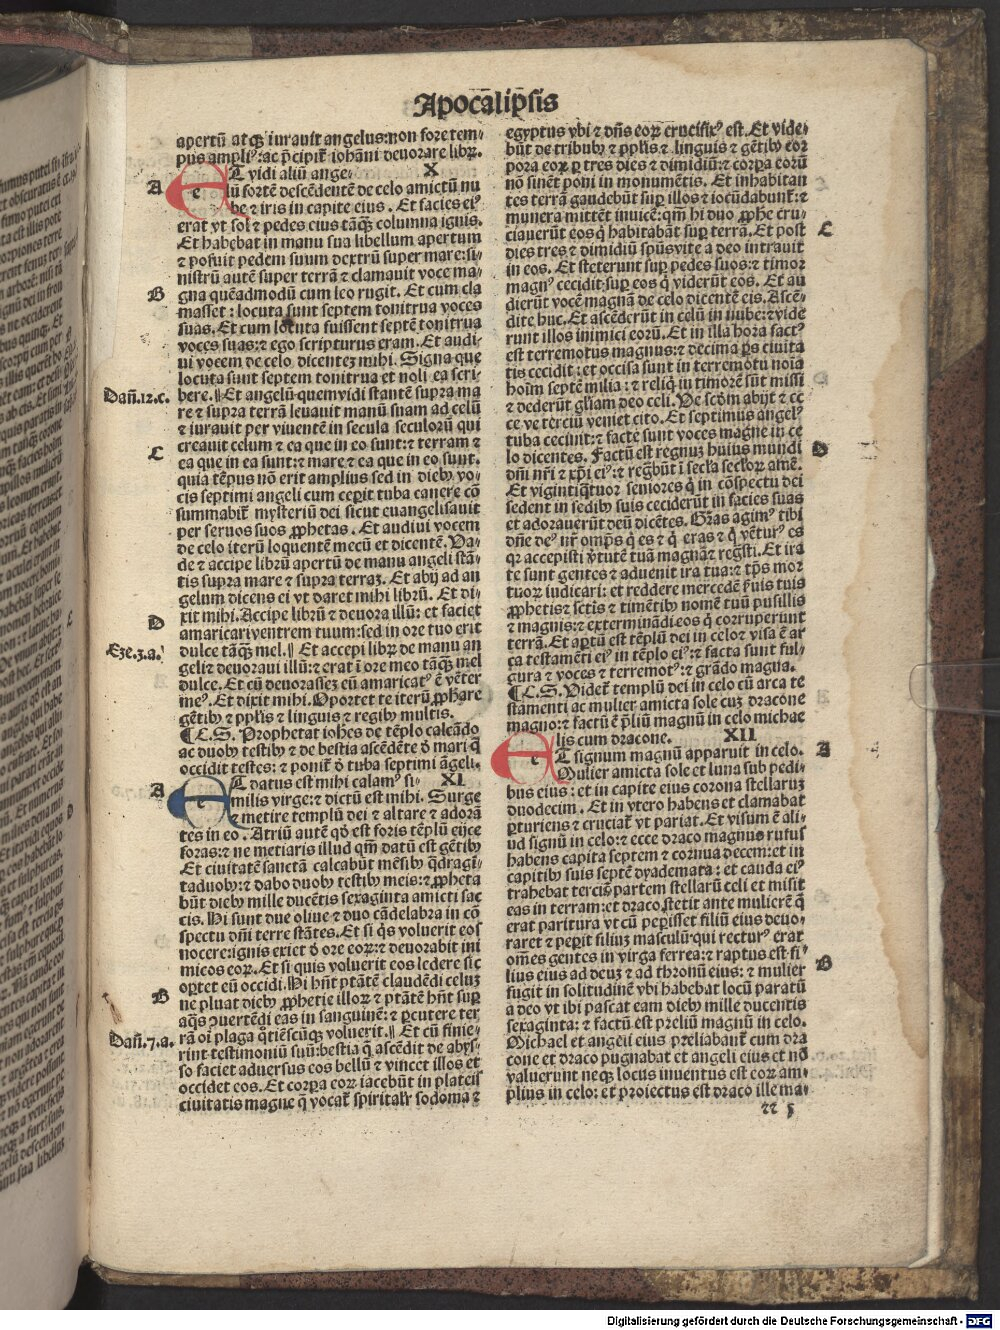 Apocalipsis
apertū atqꝫ iurauit angelus:non fore tem-
pus ampliꝰ:ac p̄cipit̄ iohāni deuorare libꝝ.
ET vidi aliū ange- X
lū fortē descēdentē de celo amictū nu
be ⁊ iris in capite eius. Et facies eiꝰ
erat vt sol ⁊ pedes eius tāqꝫ columna ignis.
Et habebat in manu sua libellum apertum
⁊ posuit pedem suum dextrū super mare:si-
nistrū autē super terrā ⁊ clamauit voce ma-
gna quēadmodū cum leo rugit. Et cum cla
masset: locuta sunt septem tonitrua voces
suas. Et cum locuta fuissent septē tonitrua
voces suas:⁊ ego scripturus eram. Et audi-
ui vocem de celo dicentez mihi. Signa que
locuta sunt septem tonitrua et noli ea scri-
bere.¶Et angelū quem vidi stantē supra ma
re ⁊ supra terrā leuauit manū suam ad celū
⁊ iurauit per viuentē in secula seculorū qui
creauit celum ⁊ ea que in eo sunt:⁊ terram ⁊
ea que in ea sunt:⁊ mare ⁊ ea que in eo sunt.
quia tēpus nō erit amplius sed in diebꝫ vo-
cis septimi angeli cum ceperit tuba canere cō
summabit̄ mysteriū dei sicut euangelisauit
per seruos suos ꝓphetas. Et audiui vocem
de celo iterū loquentē mecū et dicentē. Va-
de ⁊ accipe librū apertū de manu angeli stā-
tis supra mare ⁊ supra terraz. Et abij ad an
gelum dicens ei vt daret mihi librū. Et di-
xit mihi. Accipe librū ⁊ deuora illū: et faciet
amaricari ventrem tuum:sed in ore tuo erit
dulce tāqꝫ mel.¶Et accepi libꝝ de manu an
geli ⁊ deuoraui illū:⁊ erat ī ore meo tāqꝫ mel
dulce. Et cū deuorassez eū amaricatꝰ ē vēter
meꝰ. Et dixit mihi. Oportet te iterū ꝓphare
gētibꝫ ⁊ pplis ⁊ linguis ⁊ regibꝫ multis.
¶C.S. Prophetat iohēs de tēplo calcādo
ac duobꝫ testibꝫ ⁊ de bestia ascēdēte d̄ mari q̄
occidit testes: ⁊ ponit̄ d̄ tuba septimi āgeli.
ET datus est mihi calamꝰ si- XI
milis virge:⁊ dictū est mihi. Surge
⁊ metire templū dei ⁊ altare ⁊ adorā
tes in eo. Atriū autē qd̄ est foris tēplū eijce
foras:⁊ ne metiaris illud qm̄ datū est gētibꝫ
Et ciuitatē sanctā calcabūt mēsibꝫ q̄dragī-
taduobꝫ:⁊ dabo duobꝫ testibꝫ meis:⁊ ꝓpheta
būt diebꝫ mille ducētis sexaginta amicti sac
cis. Hi sunt due oliue ⁊ duo cādelabra in cō
spectu dñi terre stātes. Et si q̄s voluerit eos
nocere:ignis exiet d̄ ore eoꝝ:⁊ deuorabit ini
micos eoꝝ. Et si quis voluerit eos ledere sic
oportet eū occidi. Hi hn̄t ptātē claudēdi celuz
ne pluat diebꝫ ꝓphetie illoꝝ ⁊ ptātē hn̄t suꝑ
aq̄s ꝯuertēdi eas in sanguinē: ⁊ ꝑcutere ter
rā oī plaga q̄tiēscūqꝫ voluerit.¶Et cū finie-
rint testimoniū suū:bestia q̄ ascēdit de abys-
so faciet aduersus eos bellū ⁊ vincet illos et
occidet eos. Et corpa eoꝝ iacebūt in plateis
ciuitatis magne q̄ vocat̄ spiritalr̄ sodoma ⁊
A
B
Dañ.12.c.
C
D
Eze.3.a.
A
B
Dañ.7.a.
egyptus vbi ⁊ dñs eoꝝ crucifixꝰ est. Et vide-
būt de tribubꝫ ⁊ pplis ⁊ linguis ⁊ gētibꝫ eoꝝ
pora eoꝝ ꝑ tres dies ⁊ dimidiū:⁊ corpa eorū
nō sinēt poni in monumētis. Et inhabitan
tes terrā gaudebūt suꝑ illos ⁊ iocūdabunt̄:⁊
munera mittēt inuicē:qm̄ hi duo ꝓphe cru-
ciauerūt eos q̄ habitabāt suꝑ terrā. Et post
dies tres ⁊ dimidiū spūs vite a deo intrauit
in eos. Et steterunt suꝑ pedes suos:⁊ timor
magnꝰ cecidit suꝑ eos q̄ viderūt eos. Et au
dierūt vocē magnā de celo dicentē eis. Ascē-
dite huc. Et ascēderūt in celū in nube:⁊ vide
runt illos inimici eorū. Et in illa hora factꝰ
est terremotus magnus:⁊ decima ꝑs ciuita
tis cecidit: et occisa sunt in terremotu noīa
hoīm septē milia: ⁊ reliq̄ in timorē sūt missi
⁊ dederūt gl̄iam deo celi. Ve scd̄m abijt ⁊ ec
ce ve terciū veniet cito. Et septimus angelꝰ
tuba cecinit:⁊ facte sunt voces magne in ce
lo dicentes. Factū est regnuz huius mundi
dñi nr̄i ⁊ xp̄i eiꝰ:⁊ regn̄bit ī secl̄a secl̄oꝝ amē.
Et vigintiq̄tuor seniores q̄ in cōspectu dei
sedent in sedibꝫ suis ceciderūt in facies suas
et adorauerūt deū dicētes. Grās agimꝰ tibi
dñe deꝰ nr̄ omp̄s q̄ es ⁊ q̄ eras ⁊ q̄ vēturꝰ es
qr accepisti v̄tutē tuā magnā ⁊ regn̄sti. Et ira
te sunt gentes ⁊ aduenit ira tua:⁊ tp̄s mor
tuoꝝ iudicari: et reddere mercedē ẜuis tuis
ꝓphetis ⁊ sctis ⁊ timētibꝫ nomē tuū pusillis
⁊ magnis:⁊ exterminādi eos q̄ corruperunt
terrā. Et aꝑtū est tēplū dei in celo:⁊ visa ē ar
ca testamēti eiꝰ in tēplo eiꝰ:⁊ facta sunt ful-
gura ⁊ voces ⁊ terremotꝰ:⁊ grādo magna.
¶C.S. Videt̄ templū dei in celo cū arca te
stamenti ac mulier amicta sole cuz dracone
magno:⁊ factū ē p̄liū magnū in celo michae
lis cum dracone. XII
ET signum magnū apparuit in celo.
Mulier amicta sole et luna sub pedi-
bus eius: et in capite eius corona stellaruz
duodecim. Et in vtero habens et clamabat
ꝑturiens ⁊ cruciat̄ vt pariat. Et visum ē ali-
ud signū in celo:⁊ ecce draco magnus rufus
habens capita septem ⁊ cornua decem:et in
capitibꝫ suis septē dyademata: et cauda eiꝰ
trahebat terciā partem stellarū celi et misit
eas in terram:et draco stetit ante mulierē q̄
erat paritura vt cū peꝑisset filiū eius deuo-
raret ⁊ peꝑit filiuz masculū qui recturꝰ erat
om̄es gentes in virga ferrea:⁊ raptus est fi-
lius eius ad deuz ⁊ ad thronū eius: ⁊ mulier
fugit in solitudinē vbi habebat locū paratū
a deo vt ibi pascat eam diebꝫ mille ducentis
sexaginta: ⁊ factū est preliū magnū in celo.
Michael et angeli eius preliabant̄ cum dra
cone et draco pugnabat et angeli eius et nō
valuerunt neqꝫ locus inuentus est eoꝝ am-
plius in celo: et proiectus est draco ille ma-
C
D
A
B
⁊⁊ 5
Digitalisierung gefördert durch die Deutsche Forschungsgemeinschaft - DFG